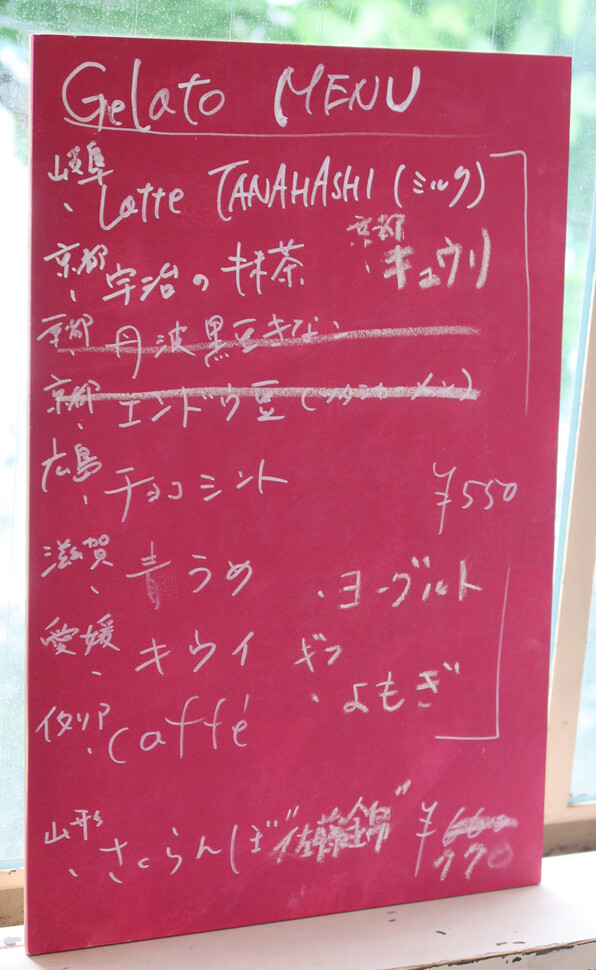 Gelato MENU
岐阜
、Latte TANAHASHI (ミルク)
京都
、宇治の抹茶
京都
、キュウリ
京都
丹波黒豆きなこ
京都
、エンドウ豆
広島
、チョコミント
¥550
滋賀
、青うめ
・ヨーグルト
愛媛
、キウイ
ギフ
、よもぎ
イタリア
、caffé
山形
、さくらんぼ"佐藤錦"
¥660
770